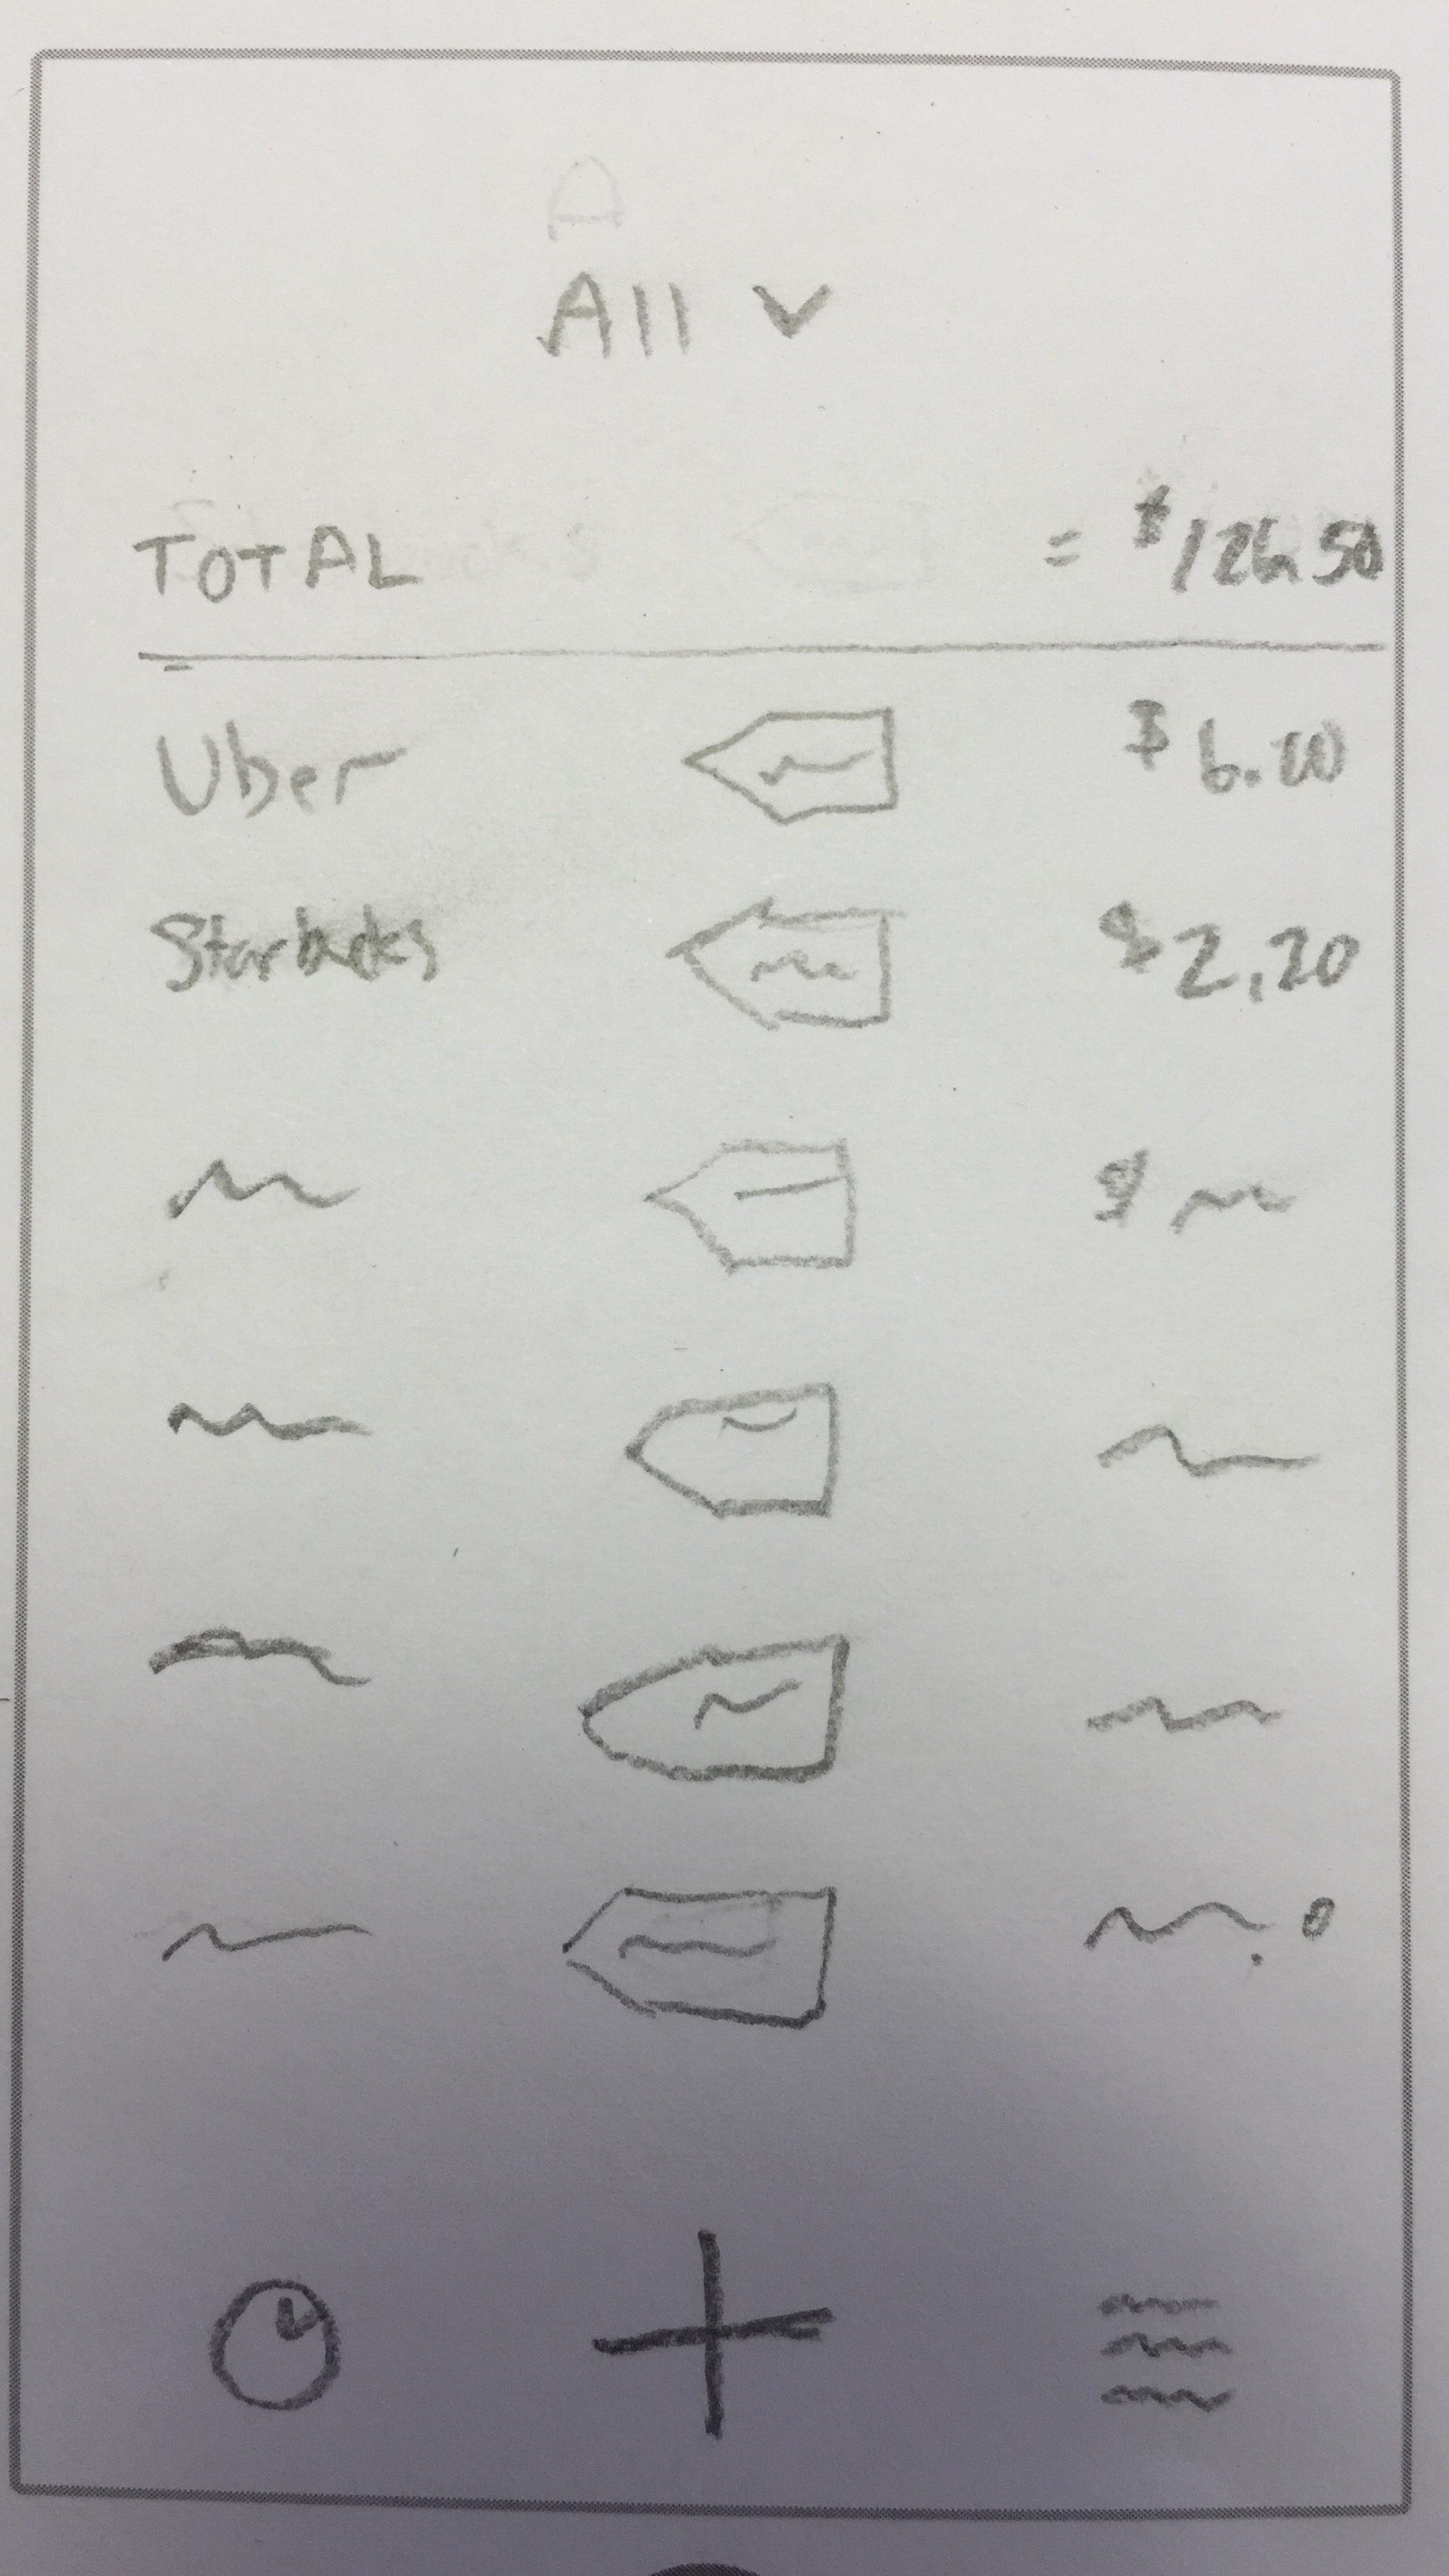 All
TOTAL = $126.50
Uber $6.00
Starbucks $2.20
$